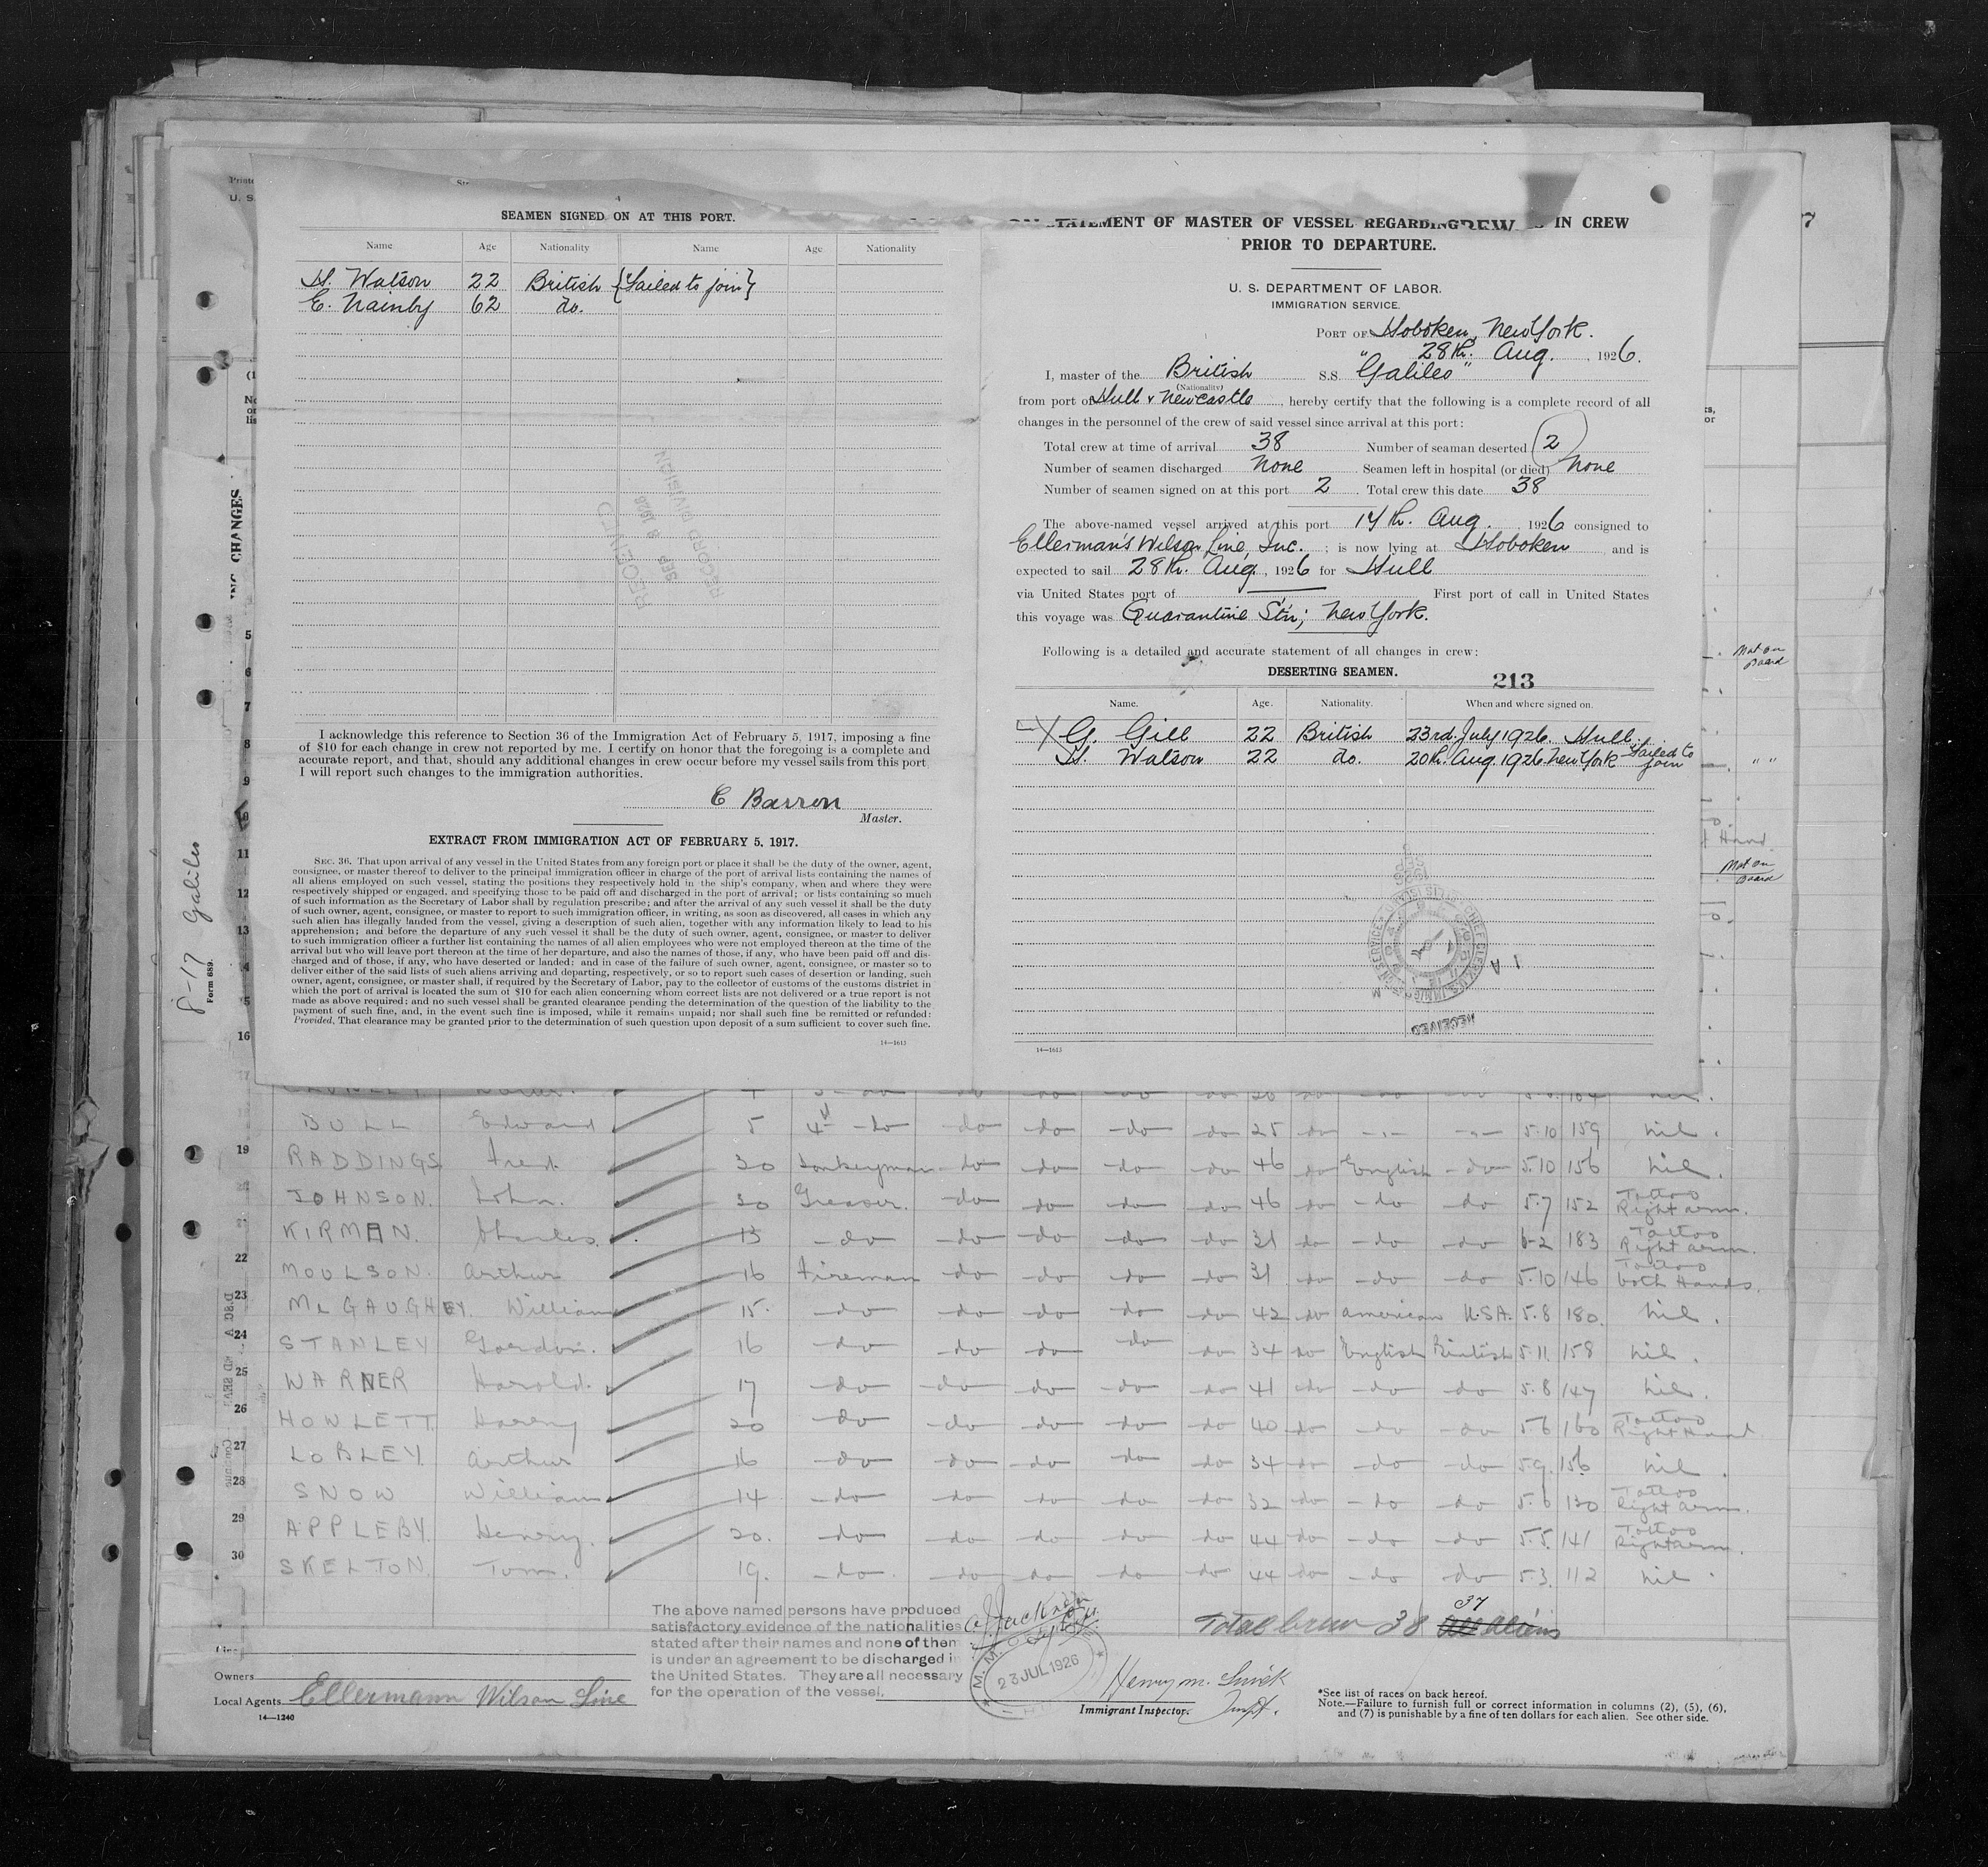 SEAMEN SIGNED ON AT THIS PORT.
Name Age Nationality Name Age Nationality
H. Watson 22 British {Failed to join}
E. Nainby 62 do.
I acknowledge this reference to Section 36 of the Immigration Act of February 5, 1917, imposing a fine
of $10 for each change in crew not reported by me. I certify on honor that the foregoing is a complete and
accurate report, and that, should any additional changes in crew occur before my vessel sails from this port
I will report such changes to the immigration authorities.
C Barron
Master.
EXTRACT FROM IMMIGRATION ACT OF FEBRUARY 5, 1917.
SEC. 36. That upon arrival of any vessel in the United States from any foreign port or place it shall be the duty of the owner, agent,
consignee, or master thereof to deliver to the principal immigration officer in charge of the port of arrival lists containing the names of
all aliens employed on such vessel, stating the positions they respectively hold in the ship's company, when and where they were
respectively shipped or engaged, and specifying those to be paid off and discharged in the port of arrival; or lists containing so much
of such information as the Secretary of Labor shall by regulation prescribe; and after the arrival of any such vessel it shall be the duty
of such owner, agent, consignee, or master to report to such immigration officer, in writing, as soon as discovered, all cases in which any
such alien has illegally landed from the vessel, giving a description of such alien, together with any information likely to lead to his
apprehension; and before the departure of any such vessel it shall be the duty of such owner, agent, consignee, or master to deliver
to such immigration officer a further list containing the names of all alien employees who were not employed thereon at the time of the
arrival but who will leave port thereon at the time of her departure, and also the names of those, if any, who have been paid off and dis-
charged and of those, if any, who have deserted or landed; and in case of the failure of such owner, agent, consignee, or master so to
deliver either of the said lists of such aliens arriving and departing, respectively, or so to report such cases of desertion or landing, such
owner, agent, consignee, or master, shall, if required by the Secretary of Labor, pay to the collector of customs of the customs district in
which the port of arrival is located the sum of $10 for each alien concerning whom correct lists are not delivered or a true report is not
made as above required; and no such vessel shall be granted clearance pending the determination of the question of the liability to the
payment of such fine, and, in the event such fine is imposed, while it remains unpaid; nor shall such fine be remitted or refunded:
Provided, That clearance may be granted prior to the determination of such question upon deposit of a sum sufficient to cover such fine.
14—1615
RECEIVED
SEP 8 1926
RECORD DIVISION
STATEMENT OF MASTER OF VESSEL REGARDING IN CREW
PRIOR TO DEPARTURE.
U. S. DEPARTMENT OF LABOR.
IMMIGRATION SERVICE.
PORT OF Hoboken, New York.
28th. Aug. , 1926.
I, master of the British S.S. "Galileo"
(Nationality)
from port of Hull & Newcastle, hereby certify that the following is a complete record of all
changes in the personnel of the crew of said vessel since arrival at this port:
Total crew at time of arrival 38 Number of seaman deserted 2
Number of seamen discharged None Seamen left in hospital (or died) None
Number of seamen signed on at this port 2. Total crew this date 38
The above-named vessel arrived at this port 17th. Aug. , 1926 consigned to
Ellerman's Wilson Line, Inc. ; is now lying at Hoboken and is
expected to sail 28th. Aug., 1926 for Hull
via United States port of First port of call in United States
this voyage was Quarantine Stn; New York.
Following is a detailed and accurate statement of all changes in crew:
DESERTING SEAMEN.
213
Name. Age. Nationality. When and where signed on.
G. Gill 22 British 23rd July 1926. Hull.
H. Watson 22 do. 20th. Aug. 1926. New York Failed to join
RECEIVED
14—1615
Not on Board
" "
Not on Board
ING CHANGES
8-17 Galileo
Form 689.
5
6
7
8
9
11
12
13
16
BULL Edward 5 4th do do do do do 25 do 5.10 159 nil.
19 RADDINGS Fred. 30 Donkeyman do do do do 46 do English do 5.10 156 nil.
JOHNSON. John. 30 Greaser. do do do do 46 do do do 5.7 152 Tattoo Right arm.
21 KIRMAN. Charles. 15 do do do do do 31 do do do 6-2 183 Tattoo Right arm.
22 MOULSON. Arthur 16 Fireman do do do do 31 do do do 5.10 146 Tattoo both Hands.
23 McGAUGHEY. William 15. do do do do do 42 do American U.S.A. 5.8 180. nil.
24 STANLEY Gordon. 16 do do do do do 34 do English British 5.11. 158 nil.
25 WARNER Harold. 17 do do do do do 41 do do do 5.8 147 nil.
26 HOWLETT. Harry 20 do do do do do 40 do do do 5.6 160 Tattoo Right Hand
27 LOBLEY. Arthur 16 do do do do do 34 do do do 5.9. 156 nil.
28 SNOW William 14 do do do do do 32 do do do 5.6 130 Tattoo Right arm.
29 APPLEBY. Henry. 20. do do do do do 44 do do do 5.5. 141 Tattoo Right arm.
30 SKELTON. Tom. 19. do do do do do 44 do do do 5.3. 112 nil.
Total Crew 38 37 All Aliens
The above named persons have produced
satisfactory evidence of the nationalities
stated after their names and none of them
is under an agreement to be discharged in
the United States. They are all necessary
for the operation of the vessel.
23 JUL 1926
Line
Owners
Local Agents Ellermann Wilson Line
14—1240
Immigrant Inspector.
*See list of races on back hereof.
Note.—Failure to furnish full or correct information in columns (2), (5), (6),
and (7) is punishable by a fine of ten dollars for each alien. See other side.